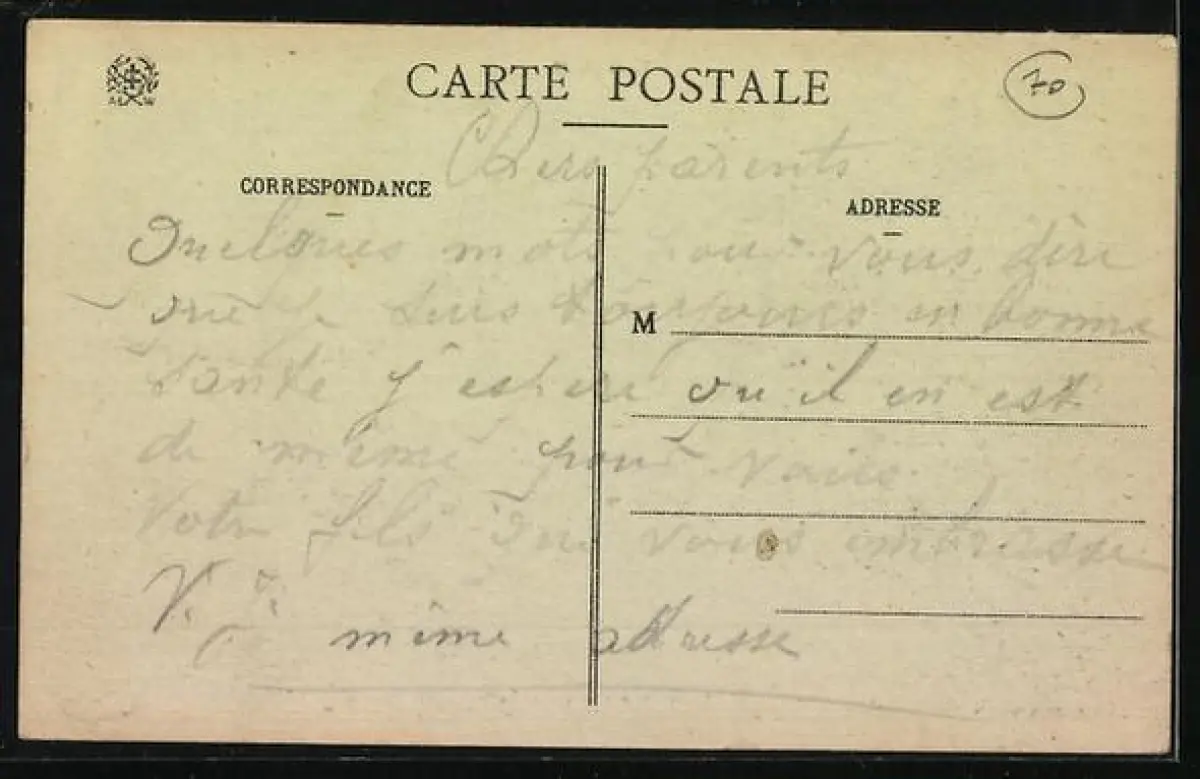 CARTE POSTALE
70
A W
CORRESPONDANCE
ADRESSE
M
Chers parents
Quelques mots pour vous dire
que je suis toujours en bonne
sante j'espere qu'il en est
de même pour vous
Votre fils qui vous embrasse
V.
même adresse